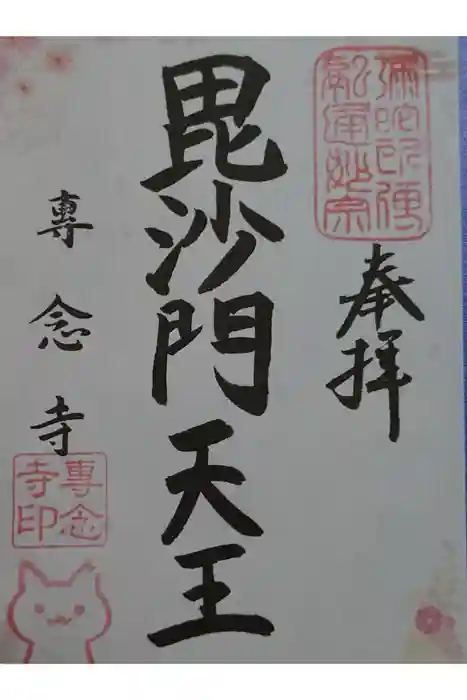 奉拝
毘沙門天王
専念寺
專念
寺印